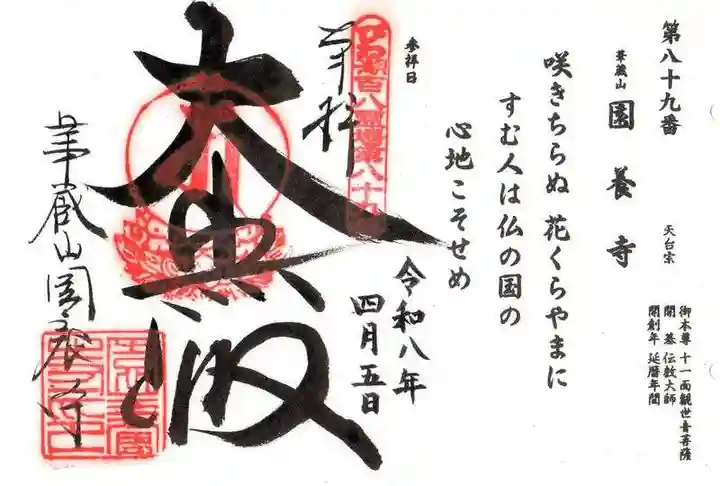 第八十九番
華蔵山 園養寺 天台宗
御本尊 十一面観世音菩薩
開基 伝教大師
開創年 延暦年間
咲きちらぬ 花くらやまに
すむ人は仏の国の
心地こそせめ
参拝日
令和八年
四月五日
奉拝
びわ湖百八霊場第八十九
大悲殿
華蔵山園養寺